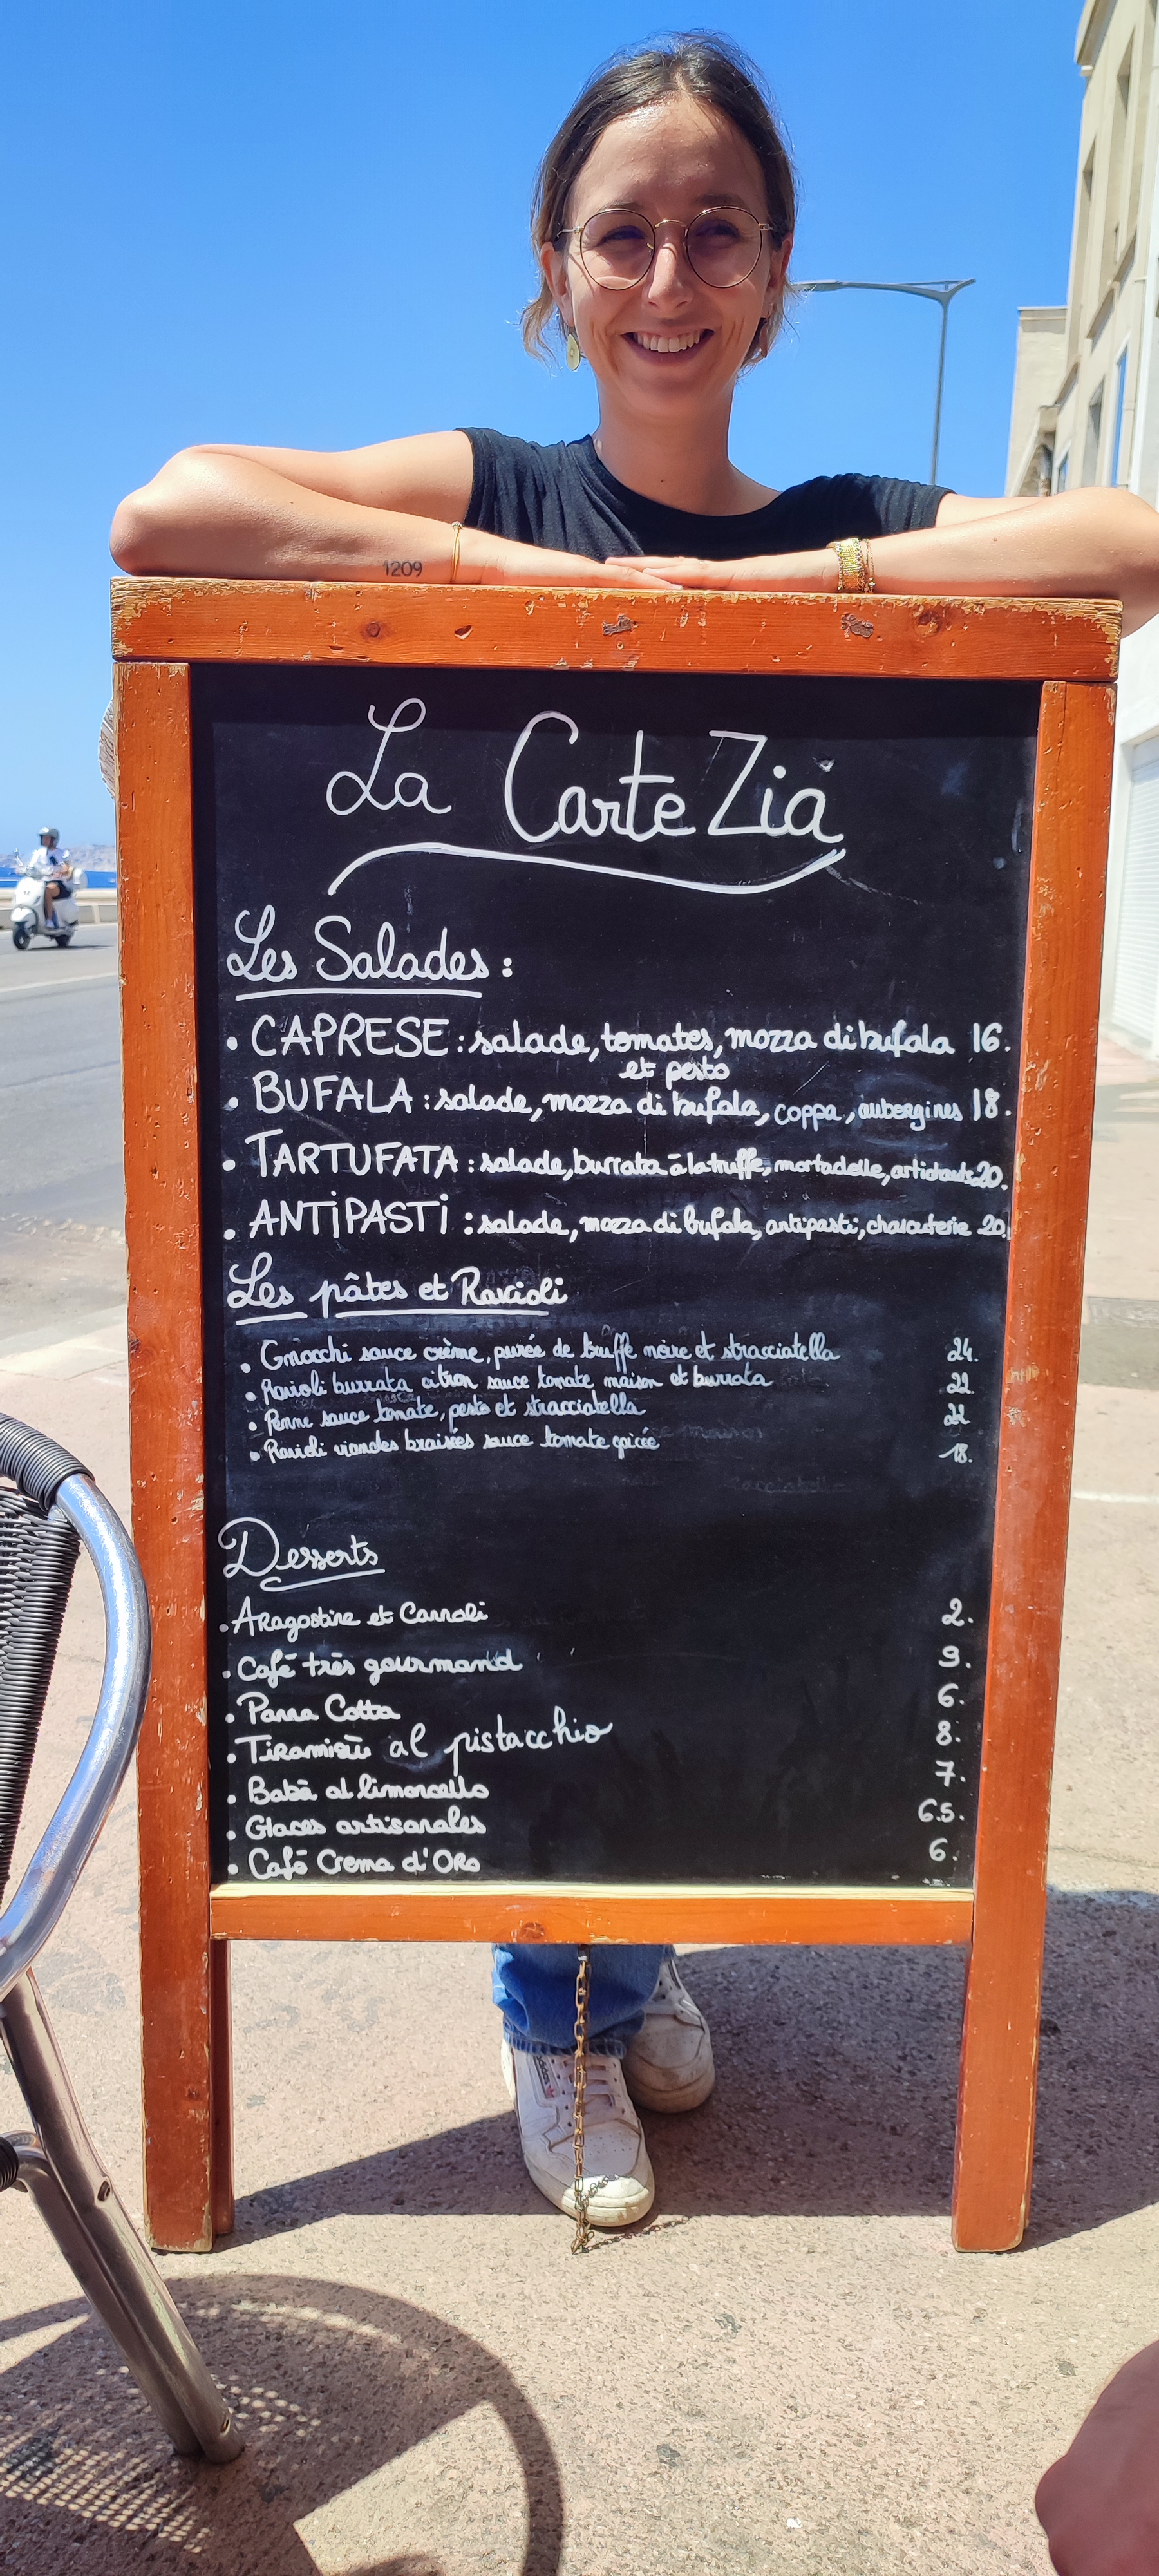 1209
La Carte Zia
Les Salades :
• CAPRESE : salade, tomates, mozza di bufala 16.
et pesto
• BUFALA : salade, mozza di bufala, coppa, aubergines 18.
• TARTUFATA : salade, burrata à la truffe, mortadelle, artichauts 20.
• ANTIPASTI : salade, mozza di bufala, antipasti, charcuterie 20.
Les pâtes et Ravioli
• Gnocchi sauce crème, purée de truffe noire et stracciatella 24.
• Ravioli burrata citron sauce tomate maison et burrata 22
• Penne sauce tomate, pesto et stracciatella 22
• Ravioli viandes braisées sauce tomate épicée 18.
Desserts
• Aragostine et Cannoli 2.
• Café très gourmand 9.
• Panna Cotta 6.
• Tiramisù al pistacchio 8.
• Babà al limoncello 7.
• Glaces artisanales 6.5.
• Café Crema d'Oro 6.
adidas